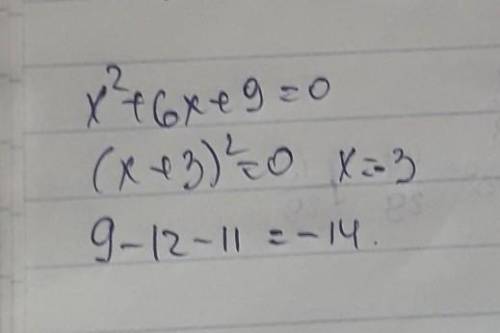 x²+6x+9=0
(x+3)²=0 x=-3
9-12-11=-14.